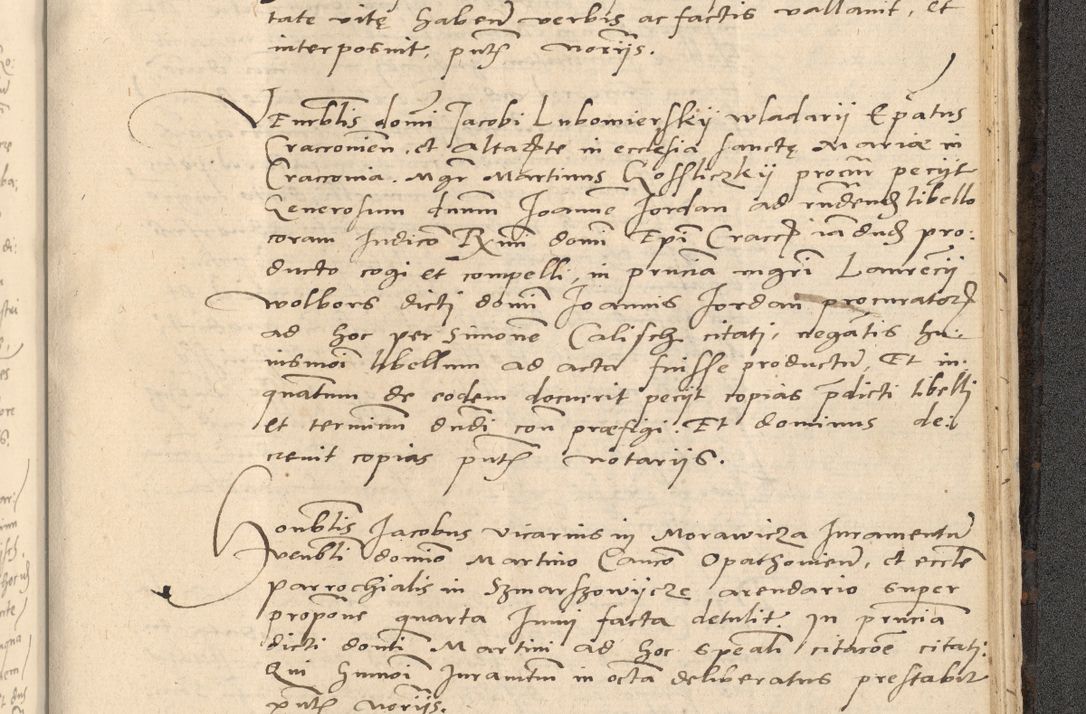 tate vitę haben̄ verbis ac factis vallavit, et
interposuit, pn̄tꝫ nor̄ijs.
Ven̄rblis dom̄i Jacobi Lubomierskij wladarij Ep̄atus
Cracovien̄. et Altar̄te in ecclesia sanctę Mariæ in
Cracovia. Mgr̄ Martinus Gosliczkij procur̄ petijt
Generosum dnum Joannē Jordan ad rn̄dendū libello
coram Judicio Rmi domi Epi Cracc. iādudū pro:
ducto cogi et compelli, in pn̄tia mgri Laurēcij
wolbors dicti domi Joannis Jordan procuratorꝫ
ad hoc per Simonē Calisch citati, negātis hu:
iusmōi libellum ad acta fuisse productū, Et in:
quantum de eodem docuerit petijt copias p̄dicti libelli
et terminū dn̄di con̄ præfigi. Et dominus de:
crevit copias pn̄tꝫ notarijs.
Hon̄blis Jacobus vicarius in Morawicza Juramentū
ven̄bli domino Martino Canco Opathovien̄, et eccle
parrochialis in Szmarszowijcze arendario super
propōne quarta Junij facta detulit. In pn̄tia
dicti domi Martini ad hoc sp̄eali citacōe citati:
Qui hmoi Juramtū in octa deliberatus prestabit
pn̄tꝫ nor̄ijs.